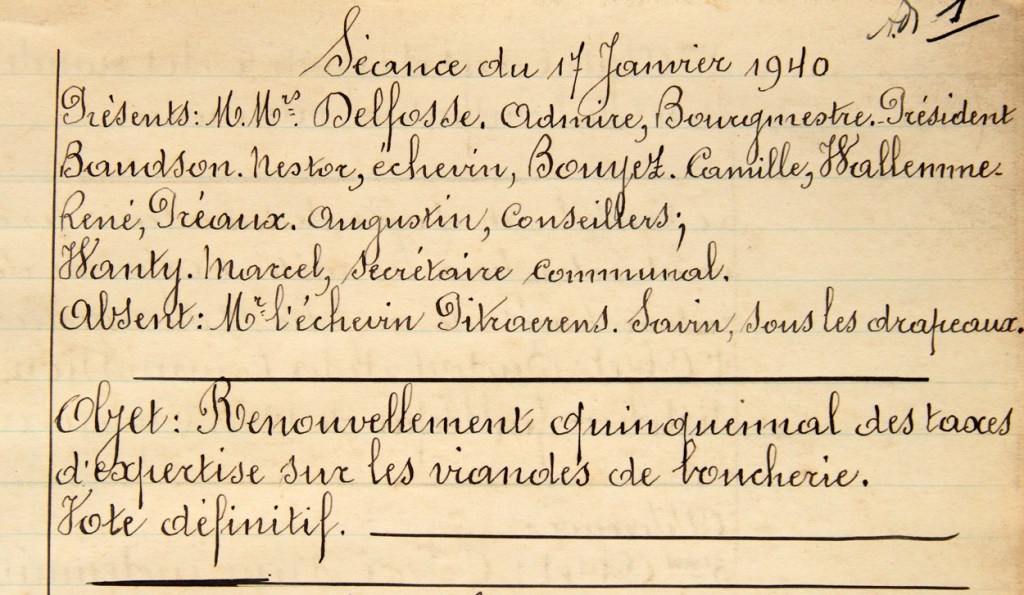 1
Séance du 17 Janvier 1940
Présents: M.Mrs. Delfosse. Admire, Bourgmestre.-Président
Baudson. Nestor, échevin, Bouyez. Camille, Wallemme-
René, Préaux. Augustin, Conseillers;
Wanty. Marcel, Secrétaire Communal.
Absent: Mr l'échevin Ditraerens. Savin, sous les drapeaux.
Objet: Renouvellement quinquennal des taxes
d'expertise sur les viandes de boucherie.
Vote définitif.